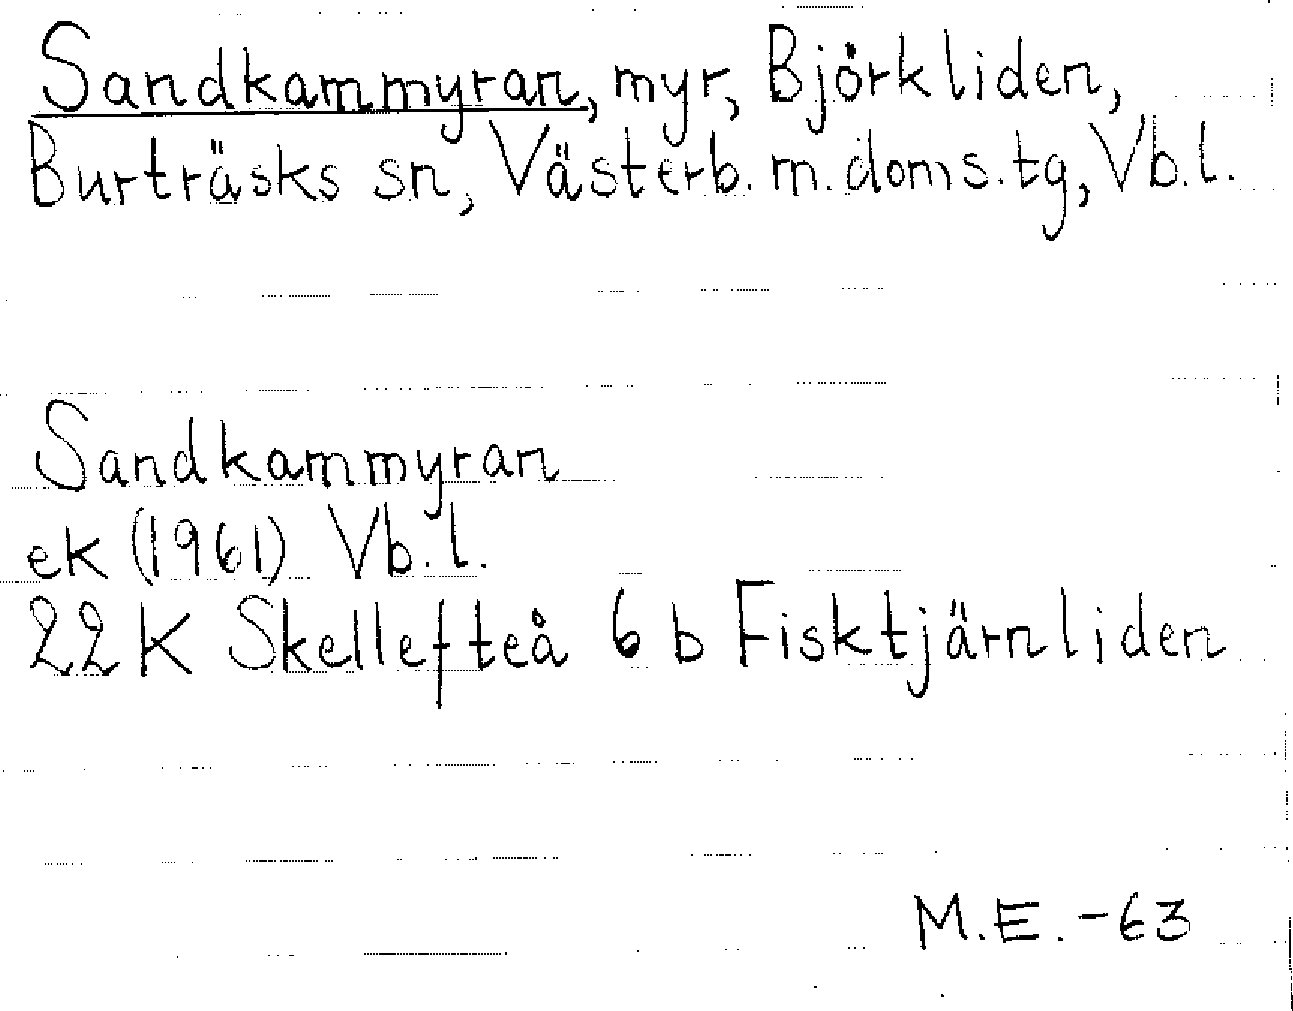 Sandkammyran, myr, Björkliden,
Burträsks sn, Västerb. m. doms. tg, Vb. l.
Sandkammyran
ek (1961) Vb. l.
22 K Skellefteå 6 b Fisktjärnliden
M.E. -63